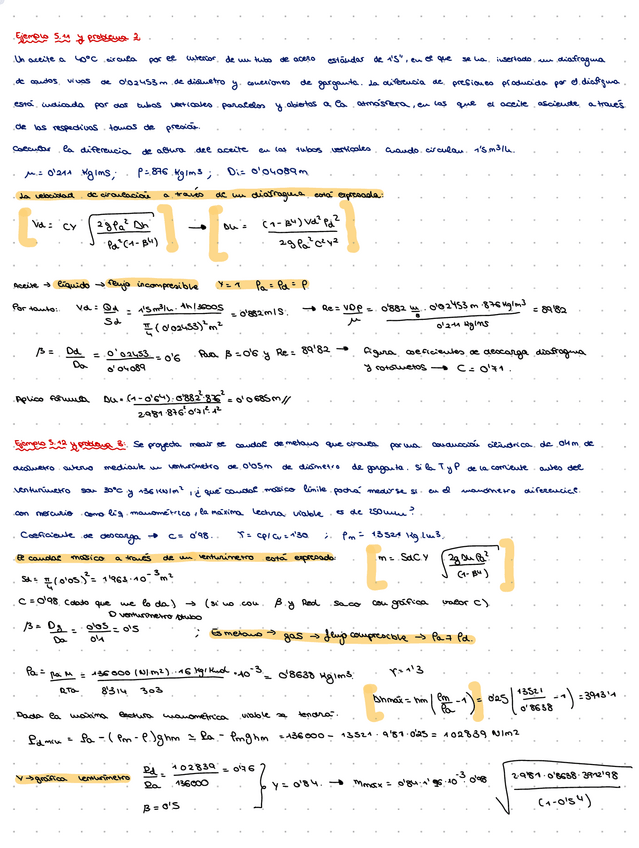 Ejemplo 5.11 y problema 2.
Un aceite a 40°C circula por el interior de un tubo de acero estándar de 1'5", en el que se ha insertado un diafragma
de cantos vivos de 0'02453 m de diámetro y conexiones de garganta. La diferencia de presiones producida por el diafragma
está indicada por dos tubos verticales paralelos y abiertos a la atmósfera, en los que el aceite asciende a través
de las respectivas tomas de presión.
Calcular la diferencia de altura del aceite en los tubos verticales cuando circulan 1'5 m³/h.
μ = 0'211 kg/ms ; ρ = 876 kg/m³ ; Di = 0'04089 m
La velocidad de circulación a través de un diafragma está expresada:
Vd = CY √(2gρa² Δh / ρd²(1-β⁴)) → Δh = (1-β⁴) Vd² ρd² / 2gρa² C² Y²
Aceite → líquido → flujo incompresible Y = 1 ρa = ρd = ρ
Por tanto: Vd = Qd / Sd = 1'5 m³/h · 1h/3600s / π/4 (0'02453)² m² = 0'882 m/s → Re = VDρ / μ = 0'882 m/s · 0'02453 m · 876 kg/m³ / 0'211 kg/ms = 89'82
β = Dd / Da = 0'02453 / 0'04089 = 0'6 Para β = 0'6 y Re = 89'82 → Figura coeficientes de descarga diafragma
y rotámetros → C = 0'71.
Aplico fórmula Δh = (1-0'6⁴) · 0'882² · 876² / 2·9'81·876²·0'71²·1² = 0'0685 m //
Ejemplo 5.12 y problema 8: Se proyecta medir el caudal de metano que circula por una conducción cilíndrica de 0'1 m de
diámetro interno mediante un venturímetro de 0'05 m de diámetro de garganta. Si la T y P de la corriente antes del
venturímetro son 30°C y 136 kN/m², ¿qué caudal másico límite podrá medirse si en el manómetro diferencial
con mercurio como líq. manométrico, la máxima lectura viable es de 250 mm?
Coeficiente de descarga → C = 0'98. γ = Cp/Cv = 1'30 ; ρm = 13521 kg/m³.
El caudal másico a través de un venturímetro está expresado: m = Sd C Y √(2gΔh ρa² / (1-β⁴))
Sd = π/4 (0'05)² = 1'963·10⁻³ m²
C = 0'98 (dato que me lo da) → (si no con β y Red saco con gráfica valor C)
D venturímetro D tubo
β = Dg / Da = 0'05 / 0'1 = 0'5 ; Es metano → gas → flujo compresible → ρa ≠ ρd.
ρa = Pa M / R Ta = 136000 (N/m²) · 16 kg/kmol / 8'314 · 303 · 10⁻³ = 0'8638 kg/m³. γ = 1'3
Δhmax = hm (ρm / ρa - 1) = 0'25 (13521 / 0'8638 - 1) = 3913'1
Dada la máxima lectura manométrica viable se tendrá:
Pd min = Pa - (ρm - ρ) g hm ≃ Pa - ρm g hm = 136000 - 13521 · 9'81 · 0'25 = 102839 N/m²
Y → gráfica venturímetro Pd / Pa = 102839 / 136000 = 0'76
β = 0'5 } Y = 0'84. → mmax = 0'84 · 1'96·10⁻³ · 0'98 √(2·9'81·0'8638·3912'98 / (1-0'5⁴))